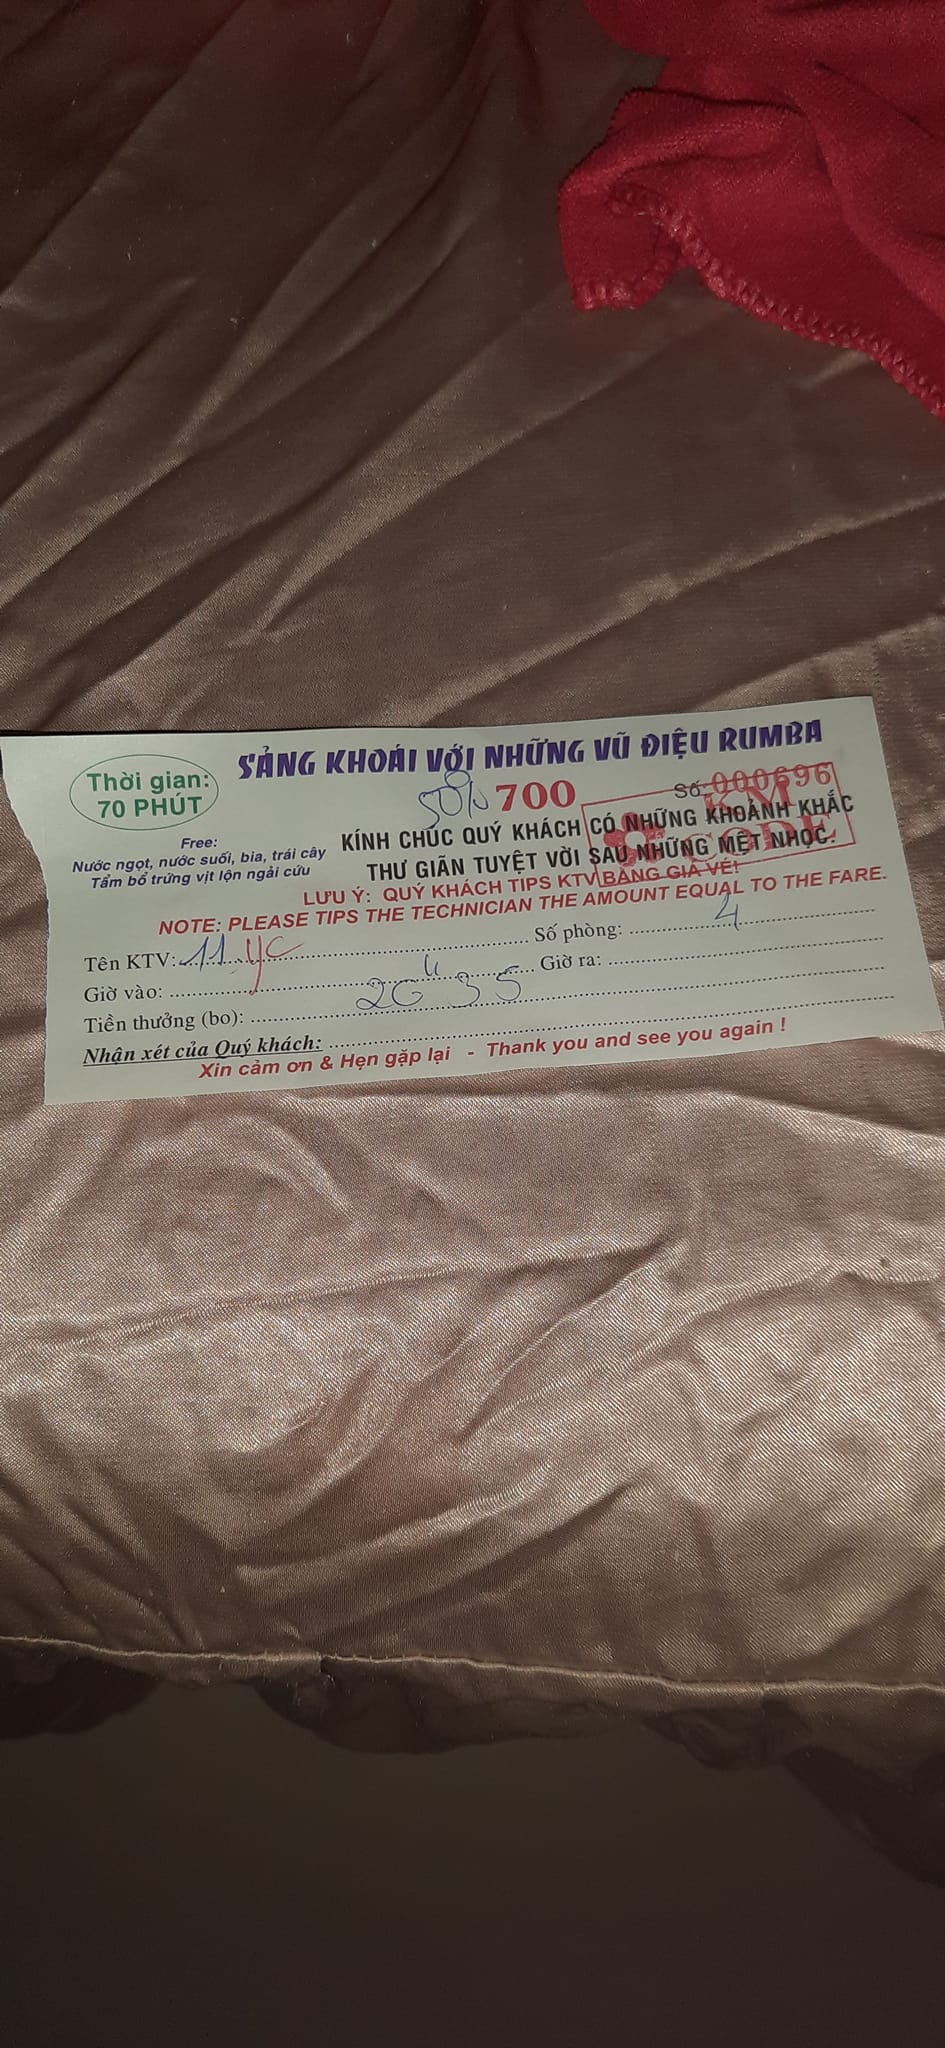 SẢNG KHOÁI VỚI NHỮNG VŨ ĐIỆU RUMBA
Thời gian:
70 PHÚT
50% 700
Số: 000696
KM
CODE
Free:
Nước ngọt, nước suối, bia, trái cây
Tẩm bổ trứng vịt lộn ngải cứu
KÍNH CHÚC QUÝ KHÁCH CÓ NHỮNG KHOẢNH KHẮC
THƯ GIÃN TUYỆT VỜI SAU NHỮNG MỆT NHỌC.
LƯU Ý: QUÝ KHÁCH TIPS KTV BẰNG GIÁ VÉ!
NOTE: PLEASE TIPS THE TECHNICIAN THE AMOUNT EQUAL TO THE FARE.
Tên KTV: 11 yc Số phòng: 4
Giờ vào: Giờ ra:
Tiền thưởng (bo):
Nhận xét của Quý khách:
Xin cảm ơn & Hẹn gặp lại - Thank you and see you again !